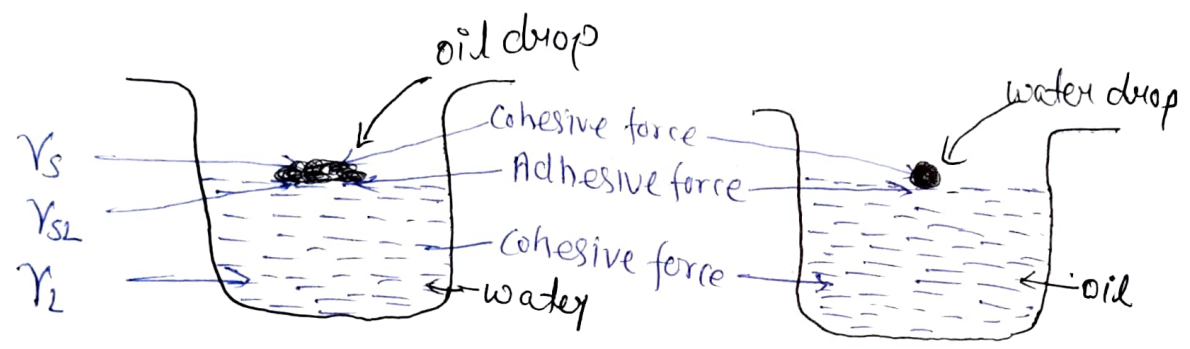 oil drop
water drop
Cohesive force
Adhesive force
Cohesive force
γS
γSL
γL
water
oil